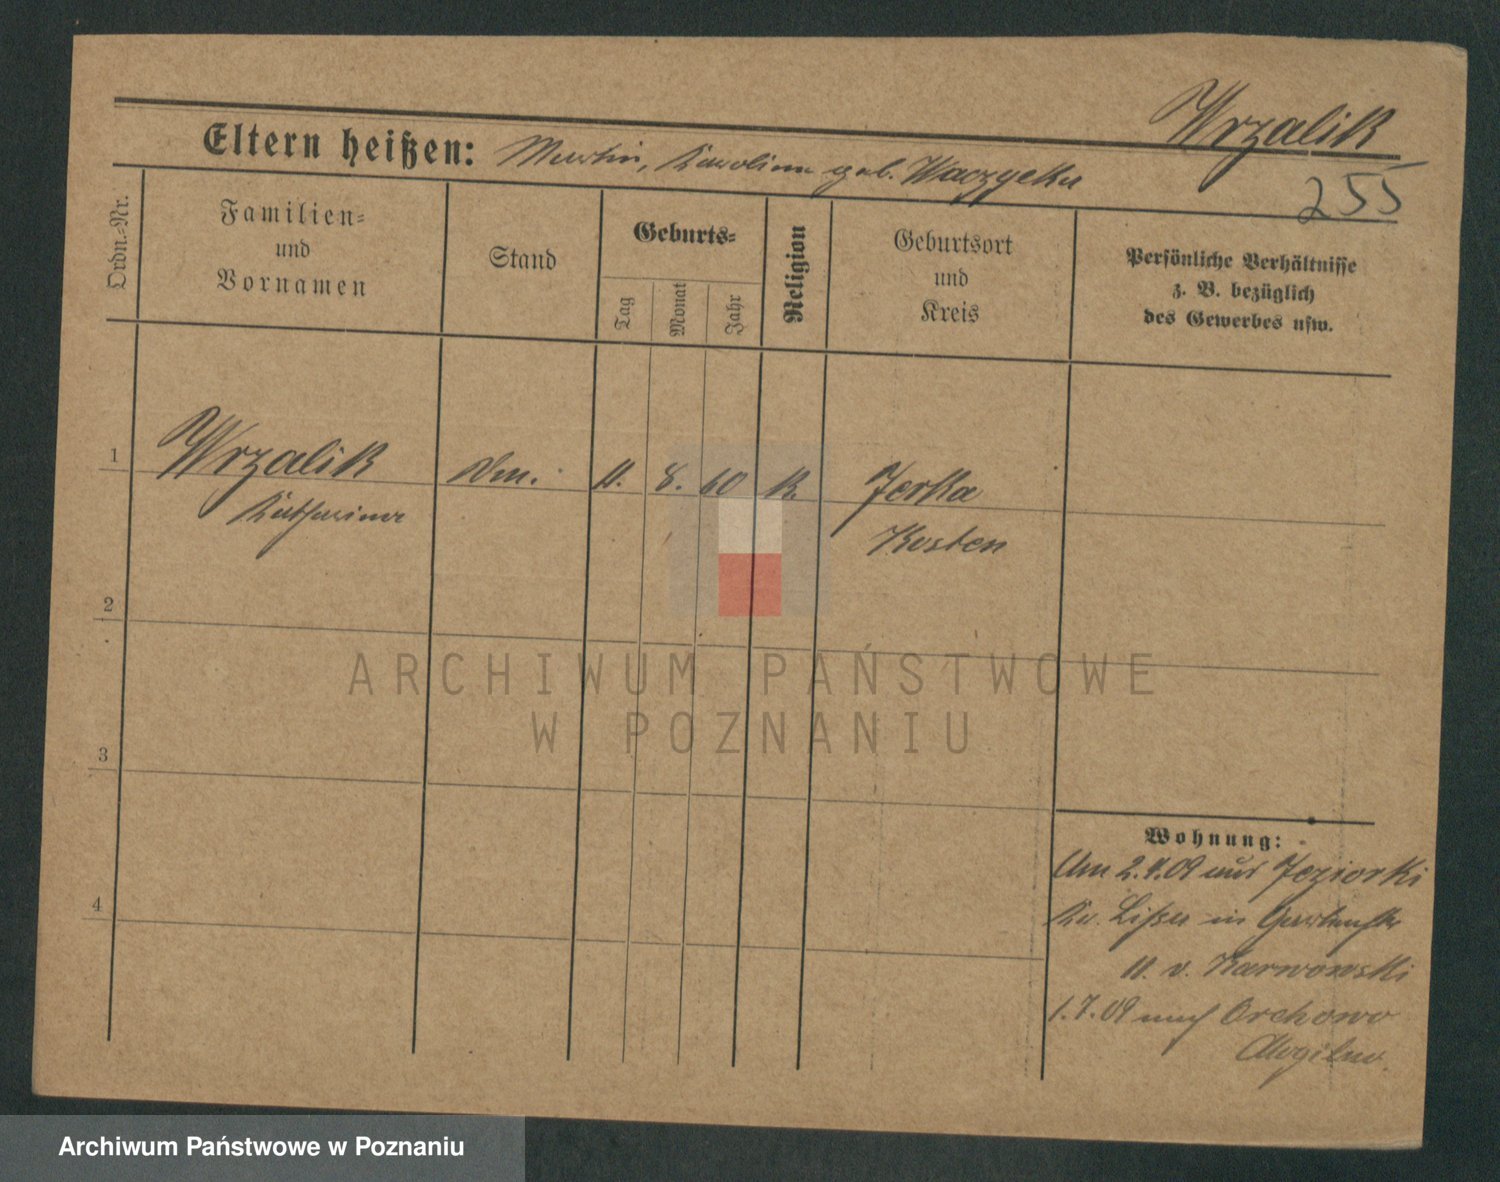 Wrzalik
Eltern heißen: Martin, Karolina geb. Waczycka
255
Ordn.-Nr.
Familien-
und
Vornamen
Stand
Geburts-
Tag
Monat
Jahr
Religion
Geburtsort
und
Kreis
Persönliche Verhältnisse
z. B. bezüglich
des Gewerbes usw.
1
Wrzalik
11. 8. 60 K.
Jerka
Katharina
Kosten
2
ARCHIWUM PAŃSTWOWE
W POZNANIU
3
Wohnung:
4
Am 2.4.09 aus Jeziorki
Kr. Lissa in
v. Karwowski
1.7.09 nach Orchowo
Mogilno.
Archiwum Państwowe w Poznaniu